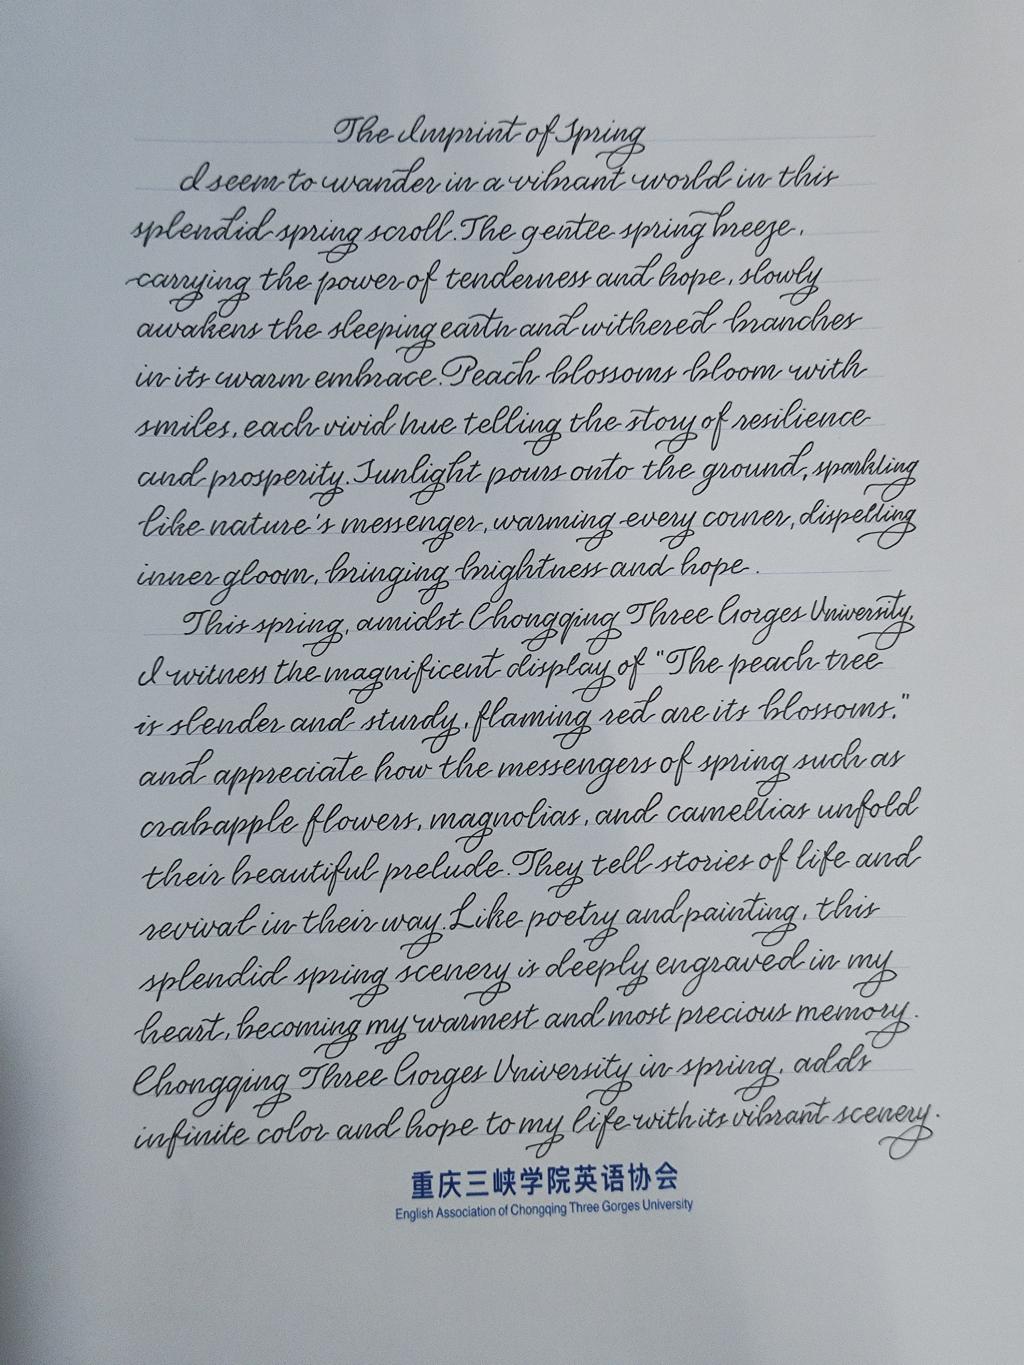 The Imprint of Spring
I seem to wander in a vibrant world in this
splendid spring scroll. The gentle spring breeze,
carrying the power of tenderness and hope, slowly
awakens the sleeping earth and withered branches
in its warm embrace. Peach blossoms bloom with
smiles, each vivid hue telling the story of resilience
and prosperity. Sunlight pours onto the ground, sparkling
like nature's messenger, warming every corner, dispelling
inner gloom, bringing brightness and hope.
This spring, amidst Chongqing Three Gorges University,
I witness the magnificent display of "The peach tree
is slender and sturdy, flaming red are its blossoms,"
and appreciate how the messengers of spring such as
crabapple flowers, magnolias, and camellias unfold
their beautiful prelude. They tell stories of life and
revival in their way. Like poetry and painting, this
splendid spring scenery is deeply engraved in my
heart, becoming my warmest and most precious memory.
Chongqing Three Gorges University in spring, adds
infinite color and hope to my life with its vibrant scenery.
重庆三峡学院英语协会
English Association of Chongqing Three Gorges University